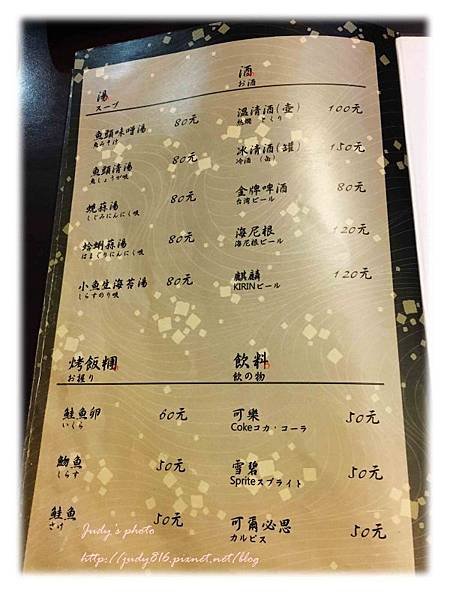 湯
スープ
魚頭味噌湯 80元
魚みそけ
魚頭清湯 80元
魚しょうが吸
蜆蒜湯 80元
しじみにんにく吸
蛤蜊蒜湯 80元
はまぐりにんにく吸
小魚生海苔湯 80元
しらすのり吸
酒
お酒
溫清酒(壺) 100元
熱燗 とくり
冰清酒(罐) 150元
冷酒 (缶)
金牌啤酒 80元
台湾ビール
海尼根 120元
海尼根ビール
麒麟 120元
KIRINビール
烤飯糰
お握り
鮭魚卵 60元
いくら
魩魚 50元
しらす
鮭魚 50元
さけ
飲料
飲の物
可樂 50元
Cokeコカ・コーラ
雪碧 50元
Spriteスプライト
可爾必思 50元
カルピス
Judy's photo
http://judy816.pixnet.net/blog